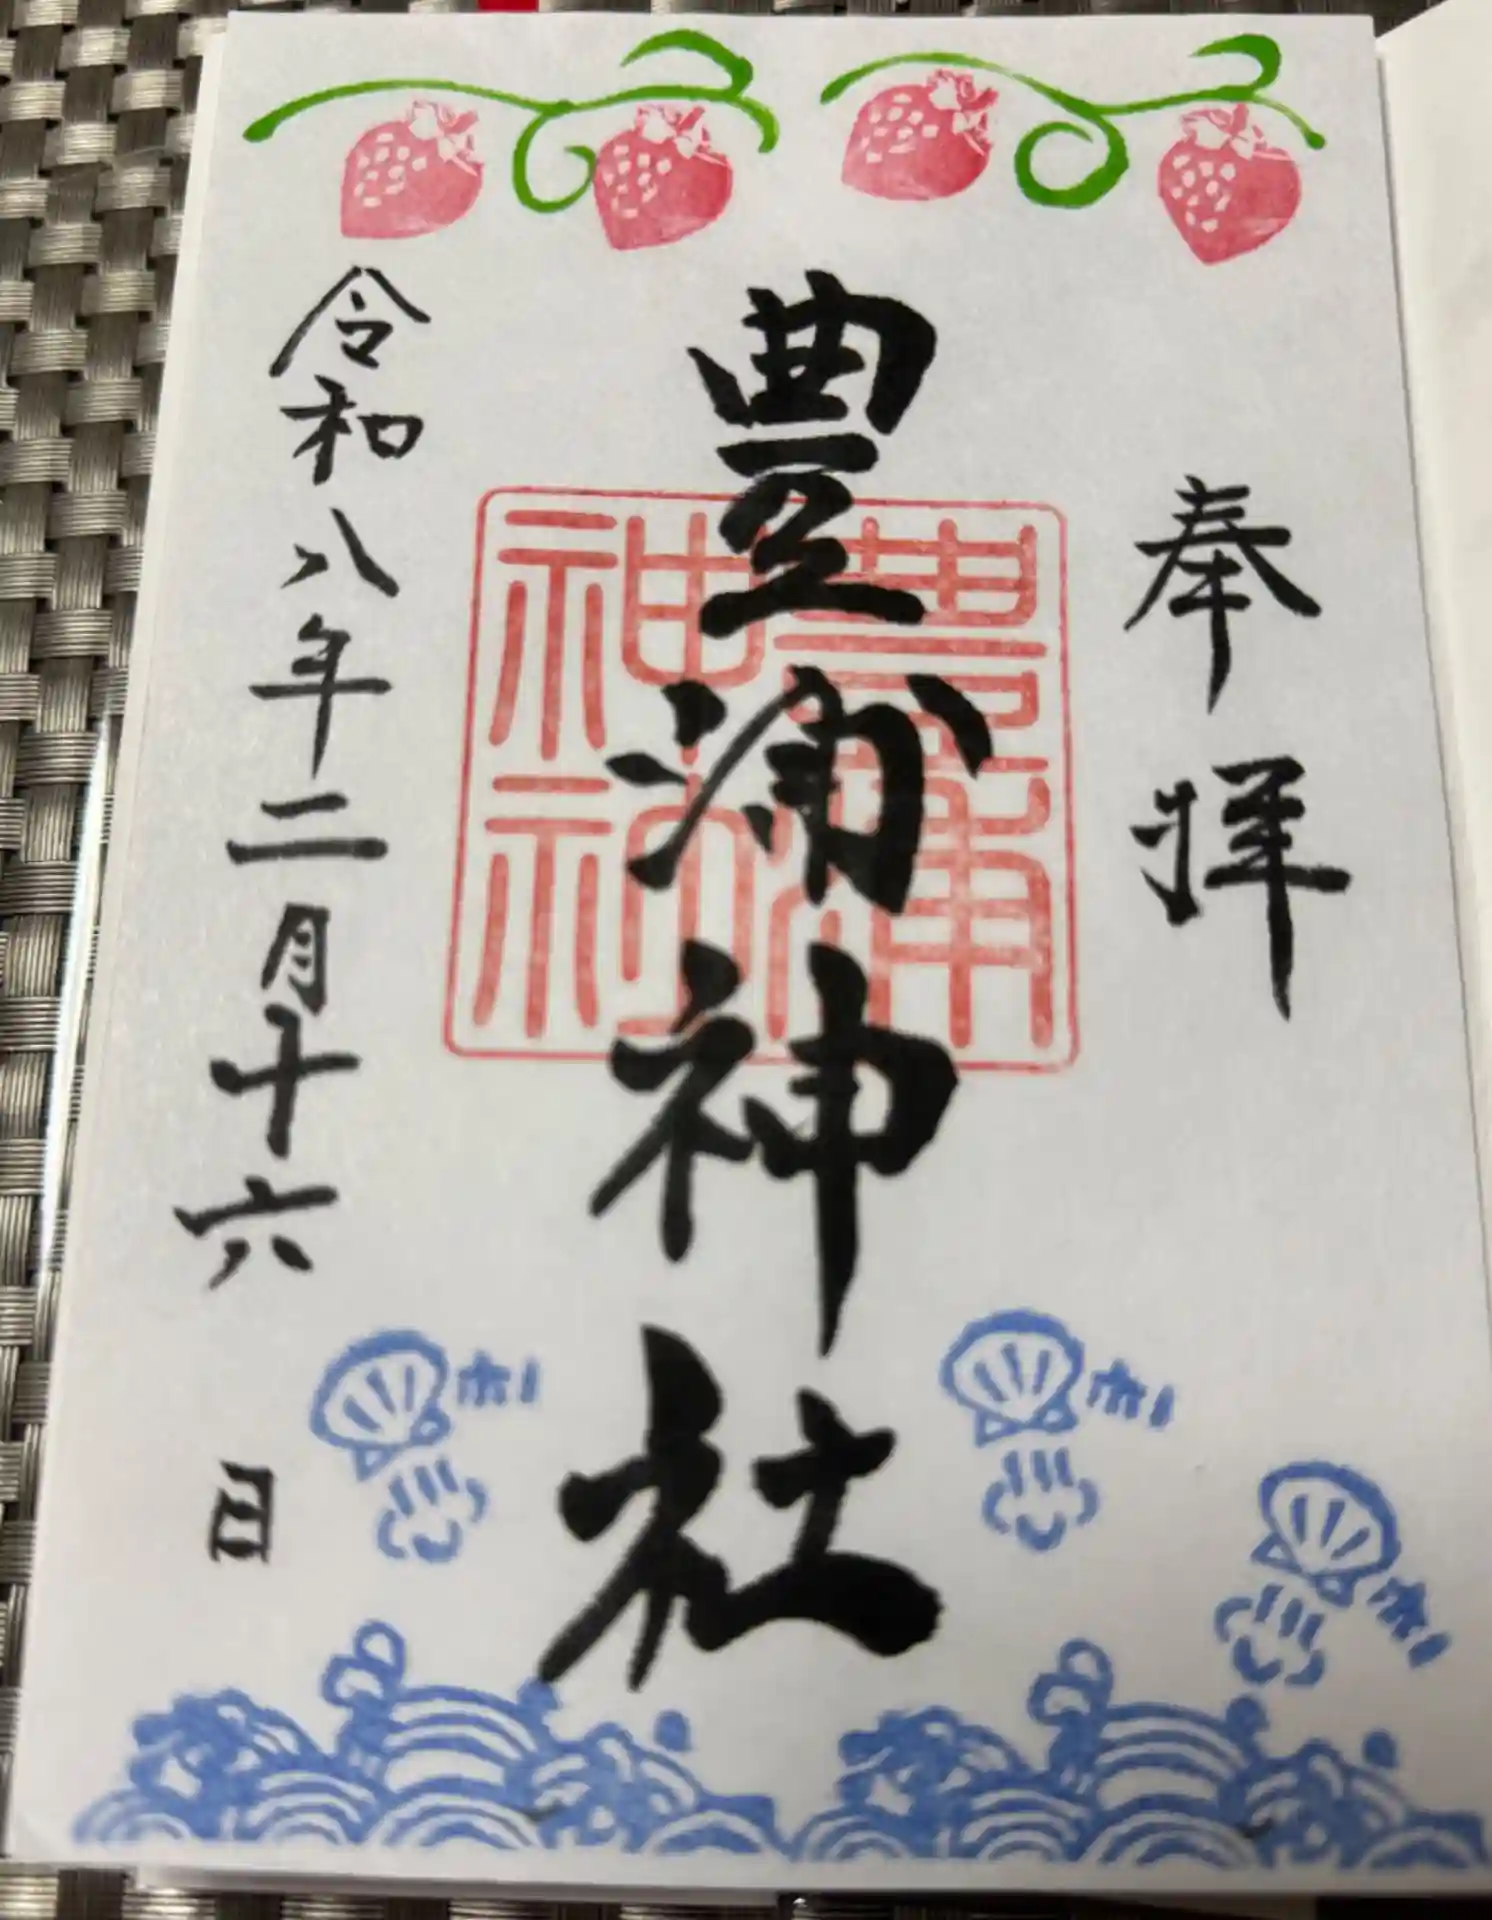 奉拝
豊浦神社
豊浦
神社
令和八年二月十六日